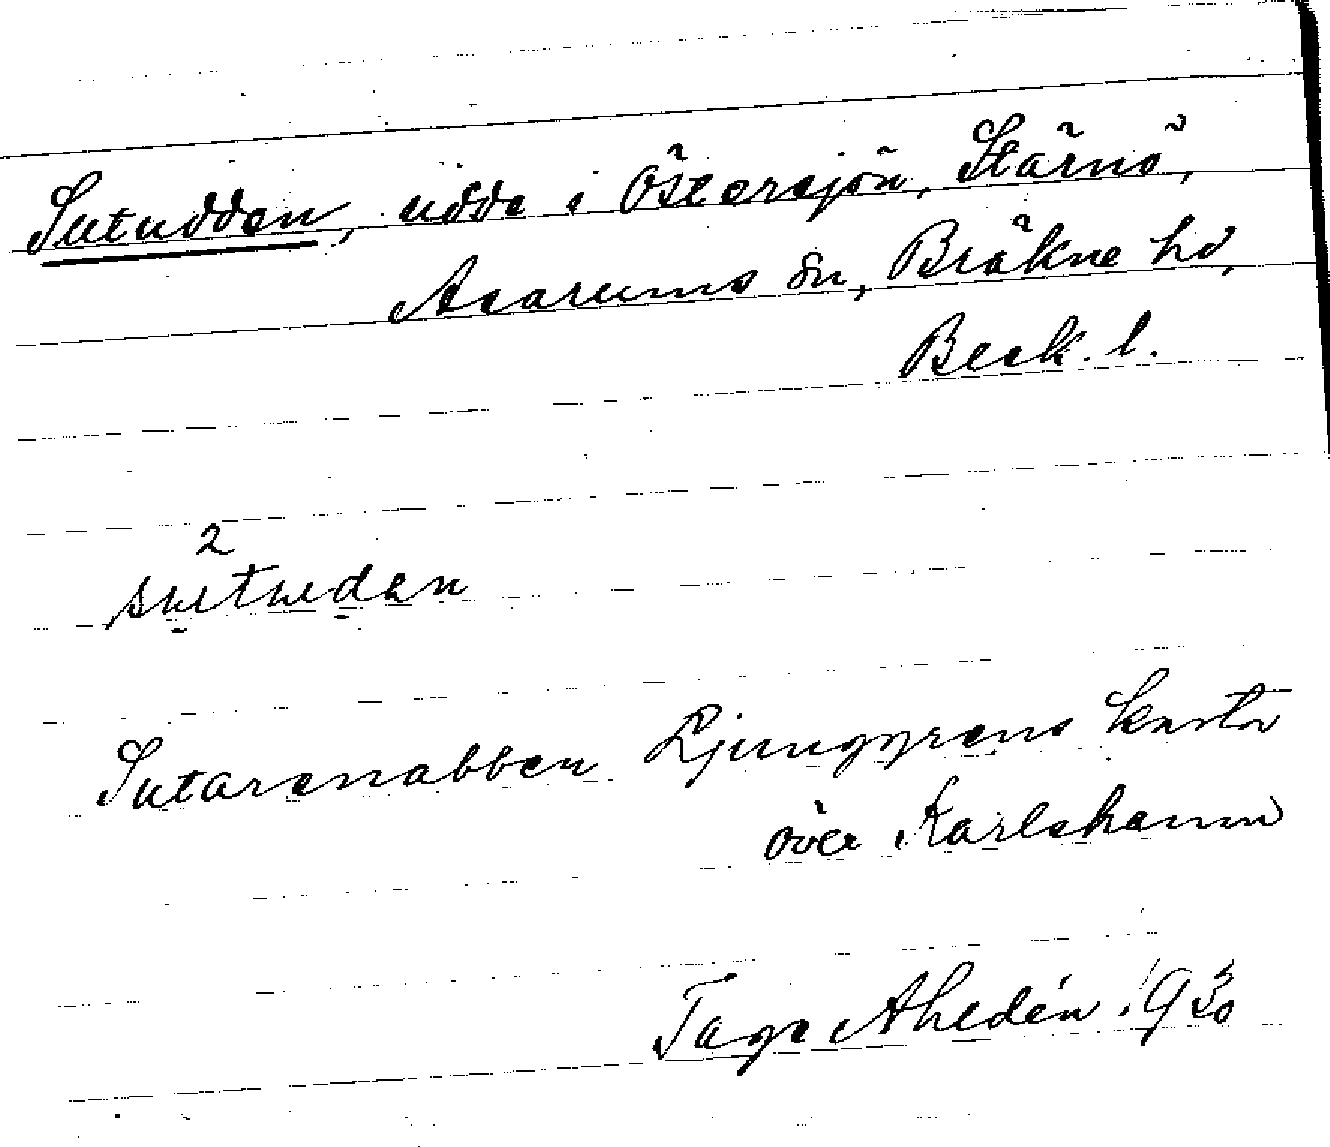 Sutudden, udde i Östersjön, Stärnö,
Asarums sn, Bräkne hd,
Blek. l.
2
sutuden
Sutarenabben Ljunggrens karta
över Karlshamn
Tage Ahldén 1930